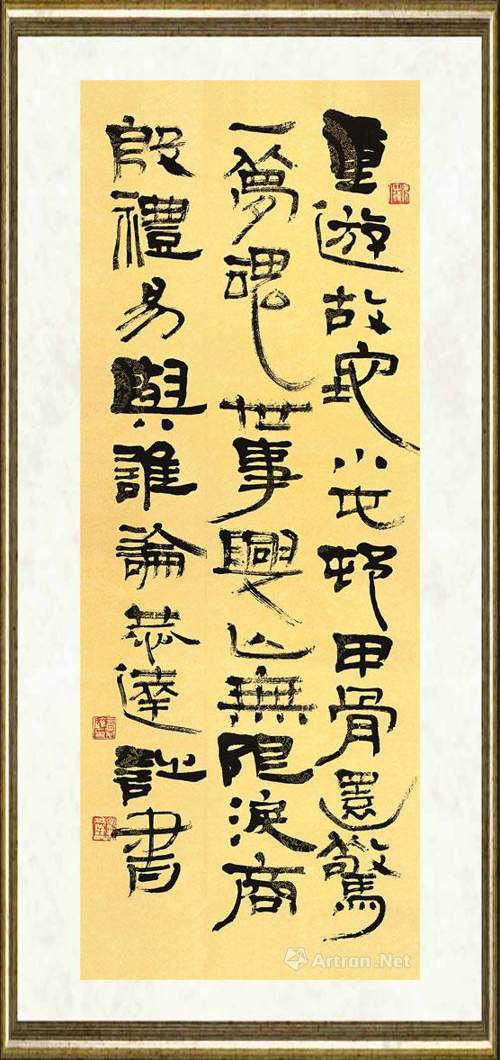 重遊故小屯邨甲骨還驚
一夢魂世事興亡無限淚商
殷禮易與誰論恭達詩書
Artron.Net